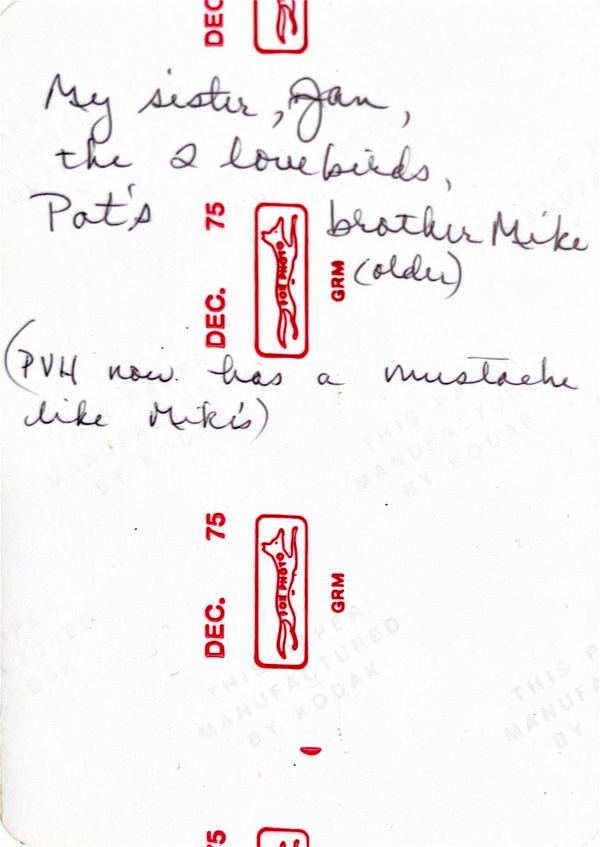 DEC
My sister, Jan,
the 2 lovebirds,
Pat's brother Mike
(older)
DEC. 75
FOX PHOTO
GRM
(PVH now has a mustache
like Mike's)
THIS PAPER
MANUFACTURED
BY KODAK
DEC. 75
FOX PHOTO
GRM
THIS PAPER
MANUFACTURED
BY KODAK
THIS P
MANUFACTU
BY
5